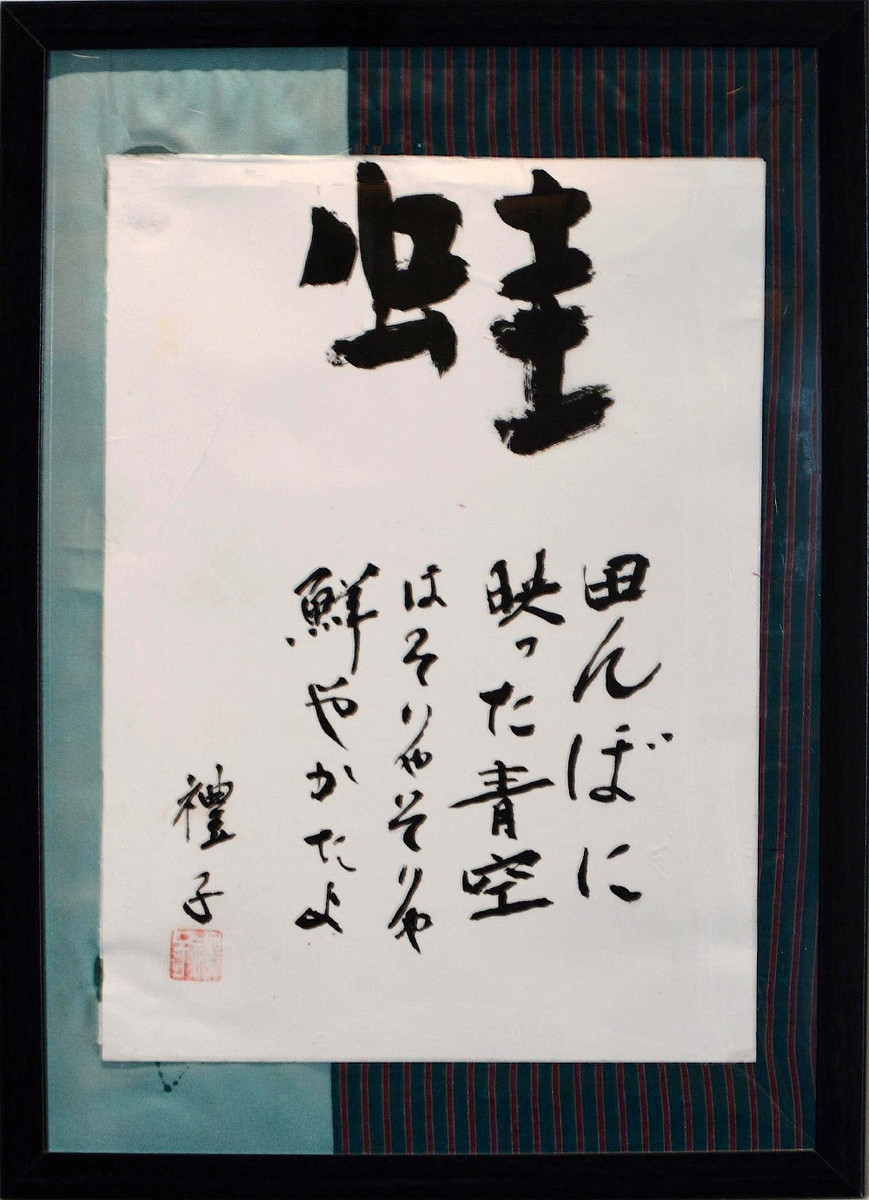 蛙
田んぼに
映った青空
はそりゃそりゃ
鮮やかたよ
禮子